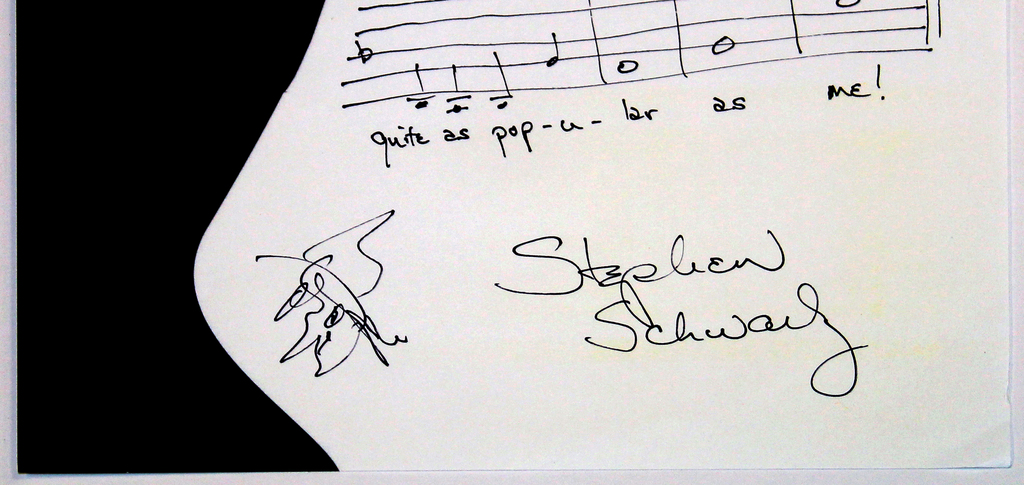 quite as pop-u-lar as me!
Stephen
Schwartz